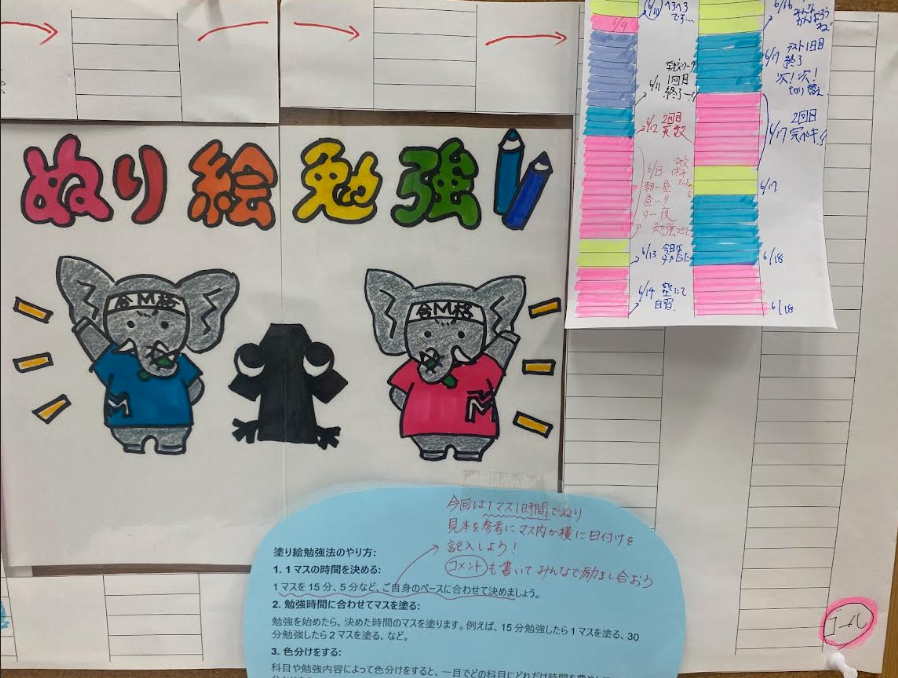 ぬり絵勉強
合M格
合M格
M
M
6/9
です…
6/11
1回目
終了
6/12 2回目
6/13
6/13 今日は
6/14 塾にて
自習
6/16
みんな
6/17 テスト1日目
終了
次!次!
切り替え
6/17 2回目
6/17
6/18
6/18
今回は1マス1時間でぬり
見本を参考にマス内か横に日付けを
記入しよう!
コメントも書いてみんなで励まし合おう
塗り絵勉強法のやり方:
1. 1マスの時間を決める:
1マスを15分、5分など、ご自身のペースに合わせて決めましょう。
2. 勉強時間に合わせてマスを塗る:
勉強を始めたら、決めた時間のマスを塗ります。例えば、15分勉強したら1マスを塗る、30
分勉強したら2マスを塗る、など。
3. 色分けをする:
科目や勉強内容によって色分けをすると、一目でどの科目にどれだけ時間を
ゴール